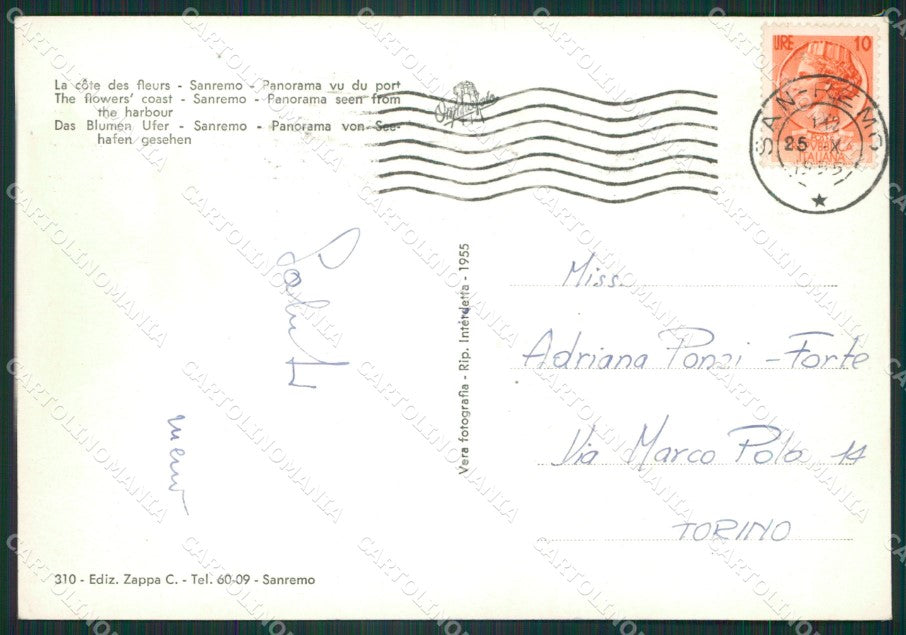 La côte des fleurs - Sanremo - Panorama vu du port
The flowers' coast - Sanremo - Panorama seen from
the harbour
Das Blumen Ufer - Sanremo - Panorama von See-
hafen gesehen
LIRE 10
SANREMO
25 X
1955
ITALIANA
Vera fotografia - Rip. Interdetta - 1955
Saluti
Miss.
Adriana Ponzi - Forte
Via Marco Polo 14
TORINO
310 - Ediz. Zappa C. - Tel. 60-09 - Sanremo
CARTOLINOMANIA